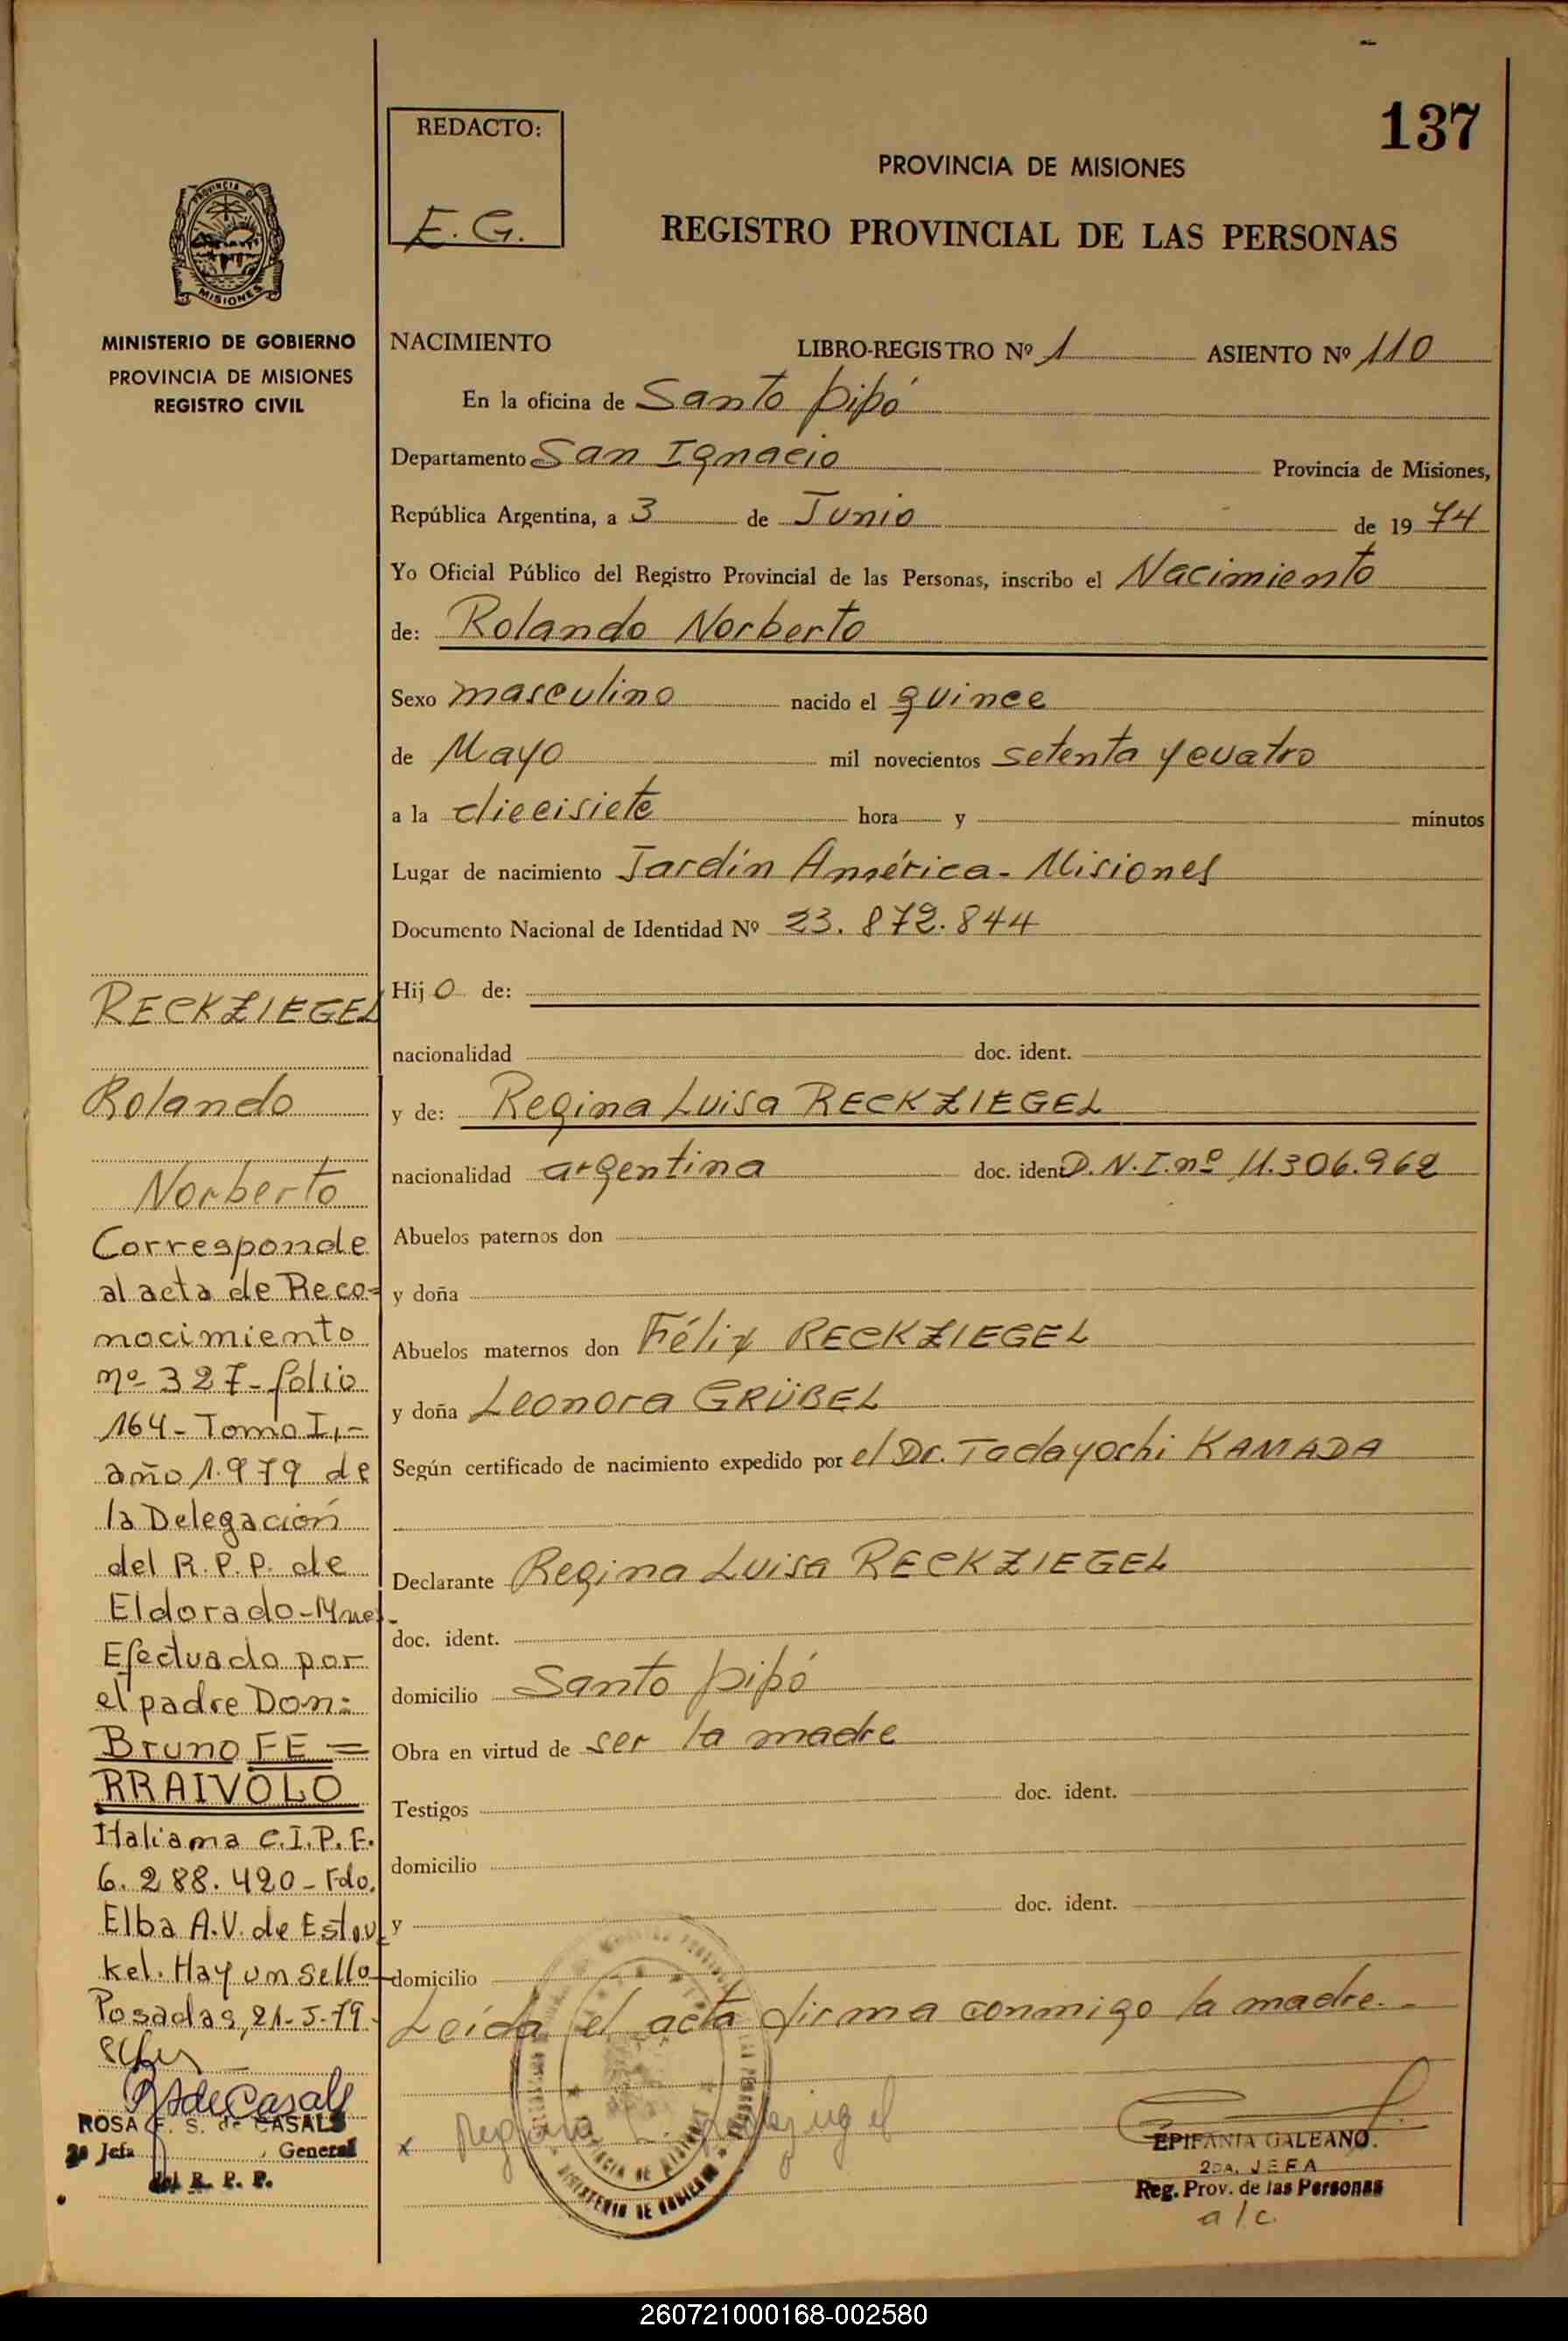 137
REDACTO:
E. G.
PROVINCIA DE MISIONES
REGISTRO PROVINCIAL DE LAS PERSONAS
PROVINCIA DE
MISIONES
MINISTERIO DE GOBIERNO
PROVINCIA DE MISIONES
REGISTRO CIVIL
NACIMIENTO LIBRO-REGISTRO Nº 1 ASIENTO Nº 110
En la oficina de Santo pipó
Departamento San Ignacio Provincia de Misiones,
República Argentina, a 3 de Junio de 1974
Yo Oficial Público del Registro Provincial de las Personas, inscribo el Nacimiento
de: Rolando Norberto
Sexo masculino nacido el quince
de Mayo mil novecientos setenta y cuatro
a la diecisiete hora y minutos
Lugar de nacimiento Jardín América - Misiones
Documento Nacional de Identidad Nº 23.872.844
Hijo de:
nacionalidad doc. ident.
y de: Regina Luisa RECKZIEGEL
nacionalidad argentina doc. ident D.N.I. nº 11.306.962
Abuelos paternos don
y doña
Abuelos maternos don Félix RECKZIEGEL
y doña Leonora GRÜBEL
Según certificado de nacimiento expedido por el Dr. Tadayochi KAMADA
Declarante Regina Luisa RECKZIEGEL
doc. ident.
domicilio Santo pipó
Obra en virtud de ser la madre
Testigos doc. ident.
domicilio
y doc. ident.
domicilio
Leída el acta firma conmigo la madre.-
x Regina L. Reckziegel
EPIFANIA GALEANO.
2DA. JEFA
Reg. Prov. de las Personas
a/c
RECKZIEGEL
Rolando
Norberto
Corresponde
al acta de Reco-
nocimiento
nº 327- folio
164- Tomo I,-
año 1.979 de
la Delegación
del R.P.P. de
Eldorado-Mnes.-
Efectuado por
el padre Don:
Bruno FE=
RRAIVOLO
Italiana C.I.P.F.
6.288.420- Fdo.
Elba A.V. de Estou
kel. Hay un sello-
Posadas, 21-5-79.
ROSA F. S. de CASALS
2ª Jefa General
del R. P. P.
260721000168-002580